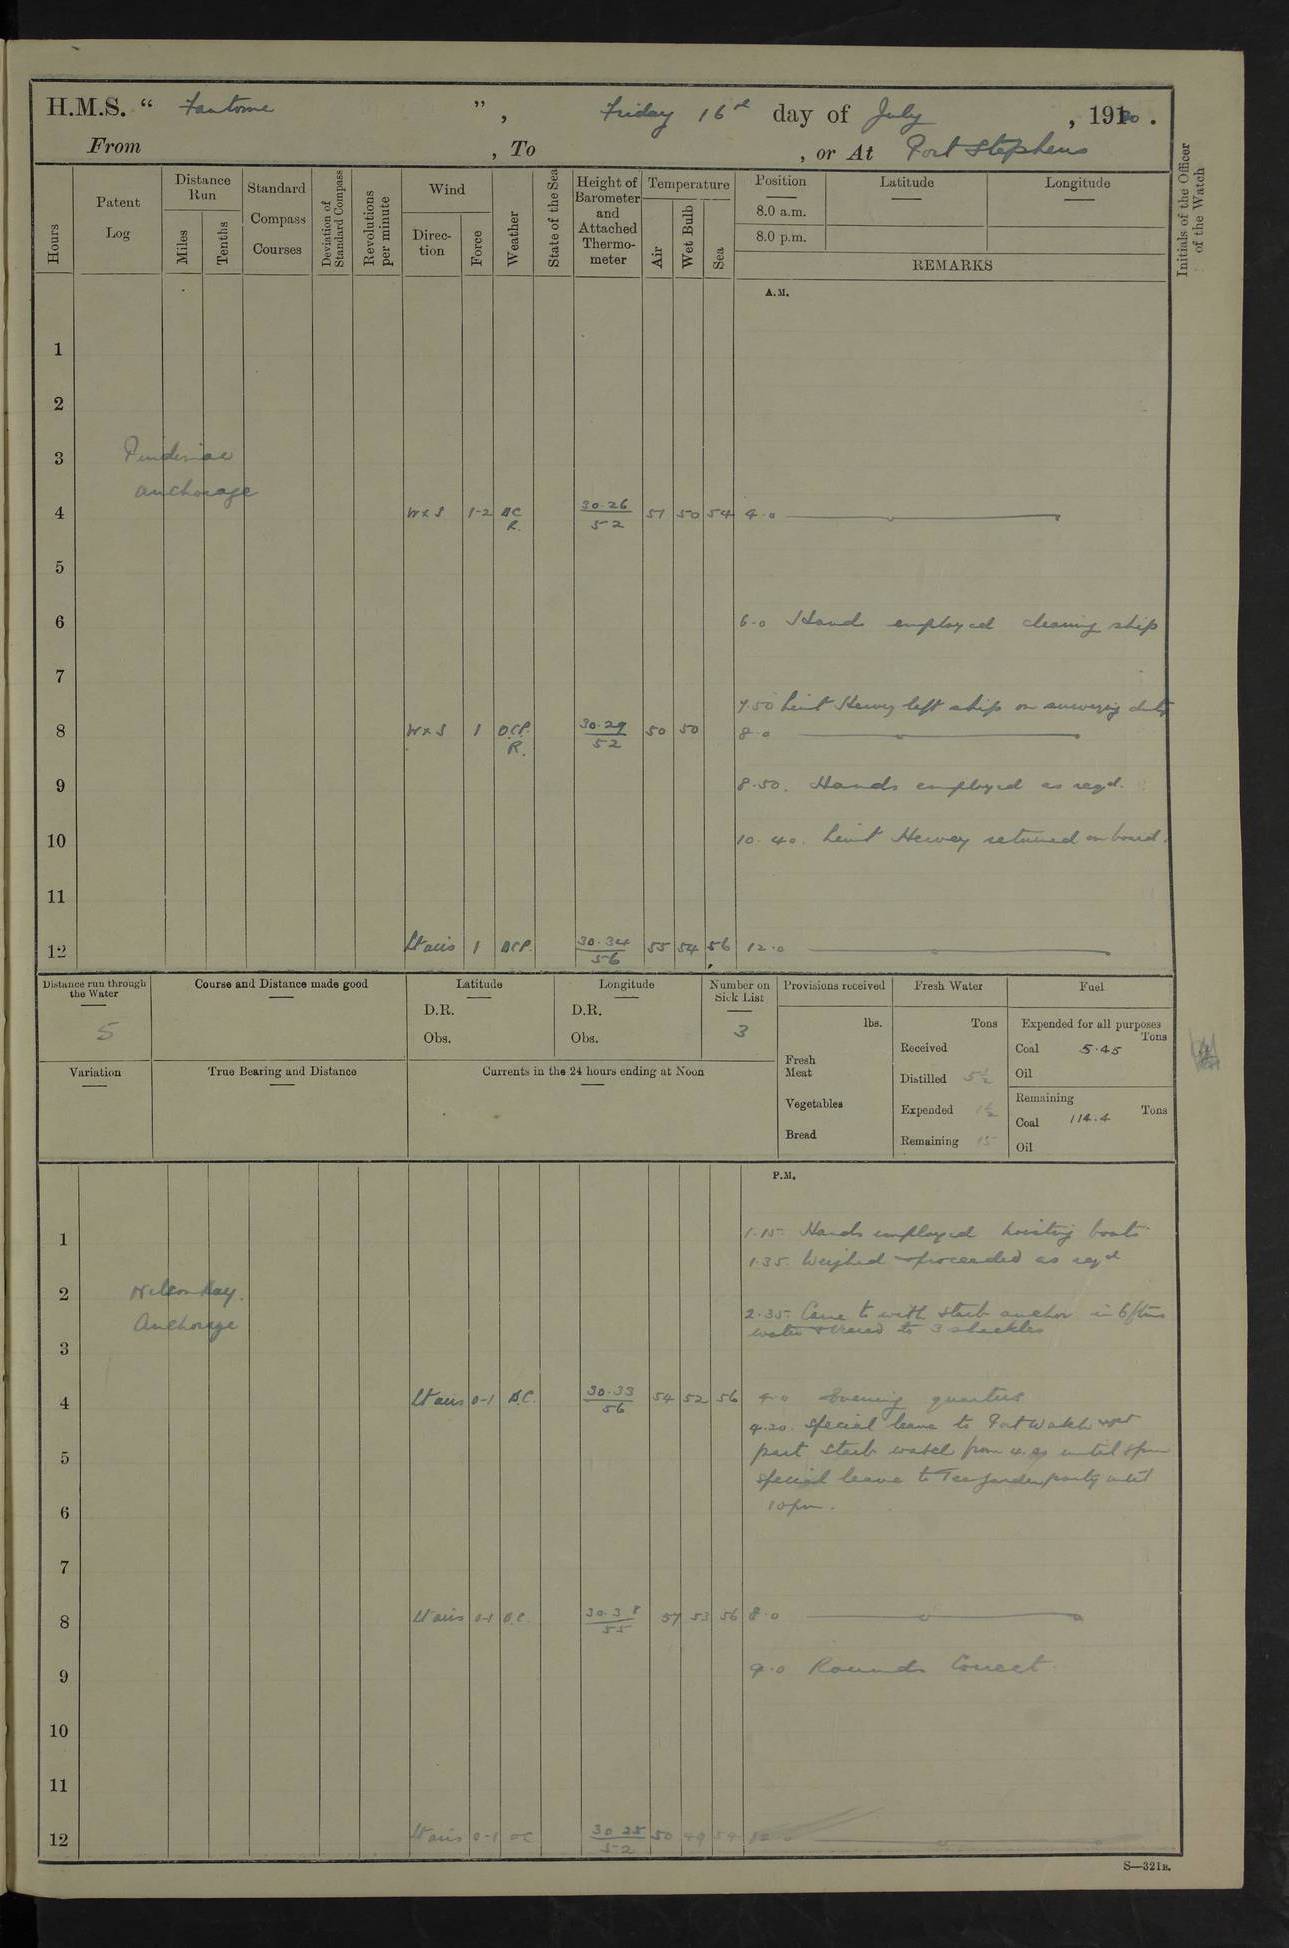 H.M.S. " Fantome ", Friday 16th day of July, 1920.
From , To , or At Port Stephens
Hours
Patent Log
Distance Run
Miles
Tenths
Standard Compass Courses
Deviation of Standard Compass
Revolutions per minute
Wind
Direction
Force
Weather
State of the Sea
Height of Barometer and Attached Thermometer
Temperature
Air
Wet Bulb
Sea
Position
8.0 a.m.
8.0 p.m.
Latitude
Longitude
REMARKS
Initials of the Officer of the Watch
A.M.
1
2
3
anchorage
4 WxS 1-2 BC R. 30.26 52 51 50 54 4.0
5
6 6.0 Hands employed cleaning ship
7
7.50 Lieut Hervey left ship on surveying duty
8 WxS 1 OCP. R. 30.29 52 50 50 8.0
9 8.50. Hands employed as reqd.
10 10.40. Lieut Hervey returned on board.
11
12 Lt airs 1 BCP. 30.34 56 55 54 56 12.0
Distance run through the Water
5
Course and Distance made good
Latitude
D.R.
Obs.
Longitude
D.R.
Obs.
Number on Sick List
3
Provisions received
lbs.
Fresh Meat
Vegetables
Bread
Fresh Water
Tons
Received
Distilled 5½
Expended 1½
Remaining 15
Fuel
Expended for all purposes
Tons
Coal 5.45
Oil
Remaining
Tons
Coal 114.4
Oil
Variation
True Bearing and Distance
Currents in the 24 hours ending at Noon
P.M.
1 1.15 Hands employed hoisting boats
1.35. Weighed & proceeded as reqd
2 Nelson Bay.
Anchorage
2.35. Came to with starb anchor in 6 fms
water & veered to 3 shackles
3
4 Lt airs 0-1 B.C. 30.33 56 54 52 56 4.0 Evening quarters
4.20. Special leave to Port Watch
part starb watch from until 8pm
5
special leave to Tea garden party until
6 10pm.
7
8 Lt airs 0-1 B.C. 30.38 55 57 53 56 8.0
9 9.0 Rounds Correct.
10
11
12 Lt airs 0-1 30 25 52 50 49 54 12.0
S—321B.